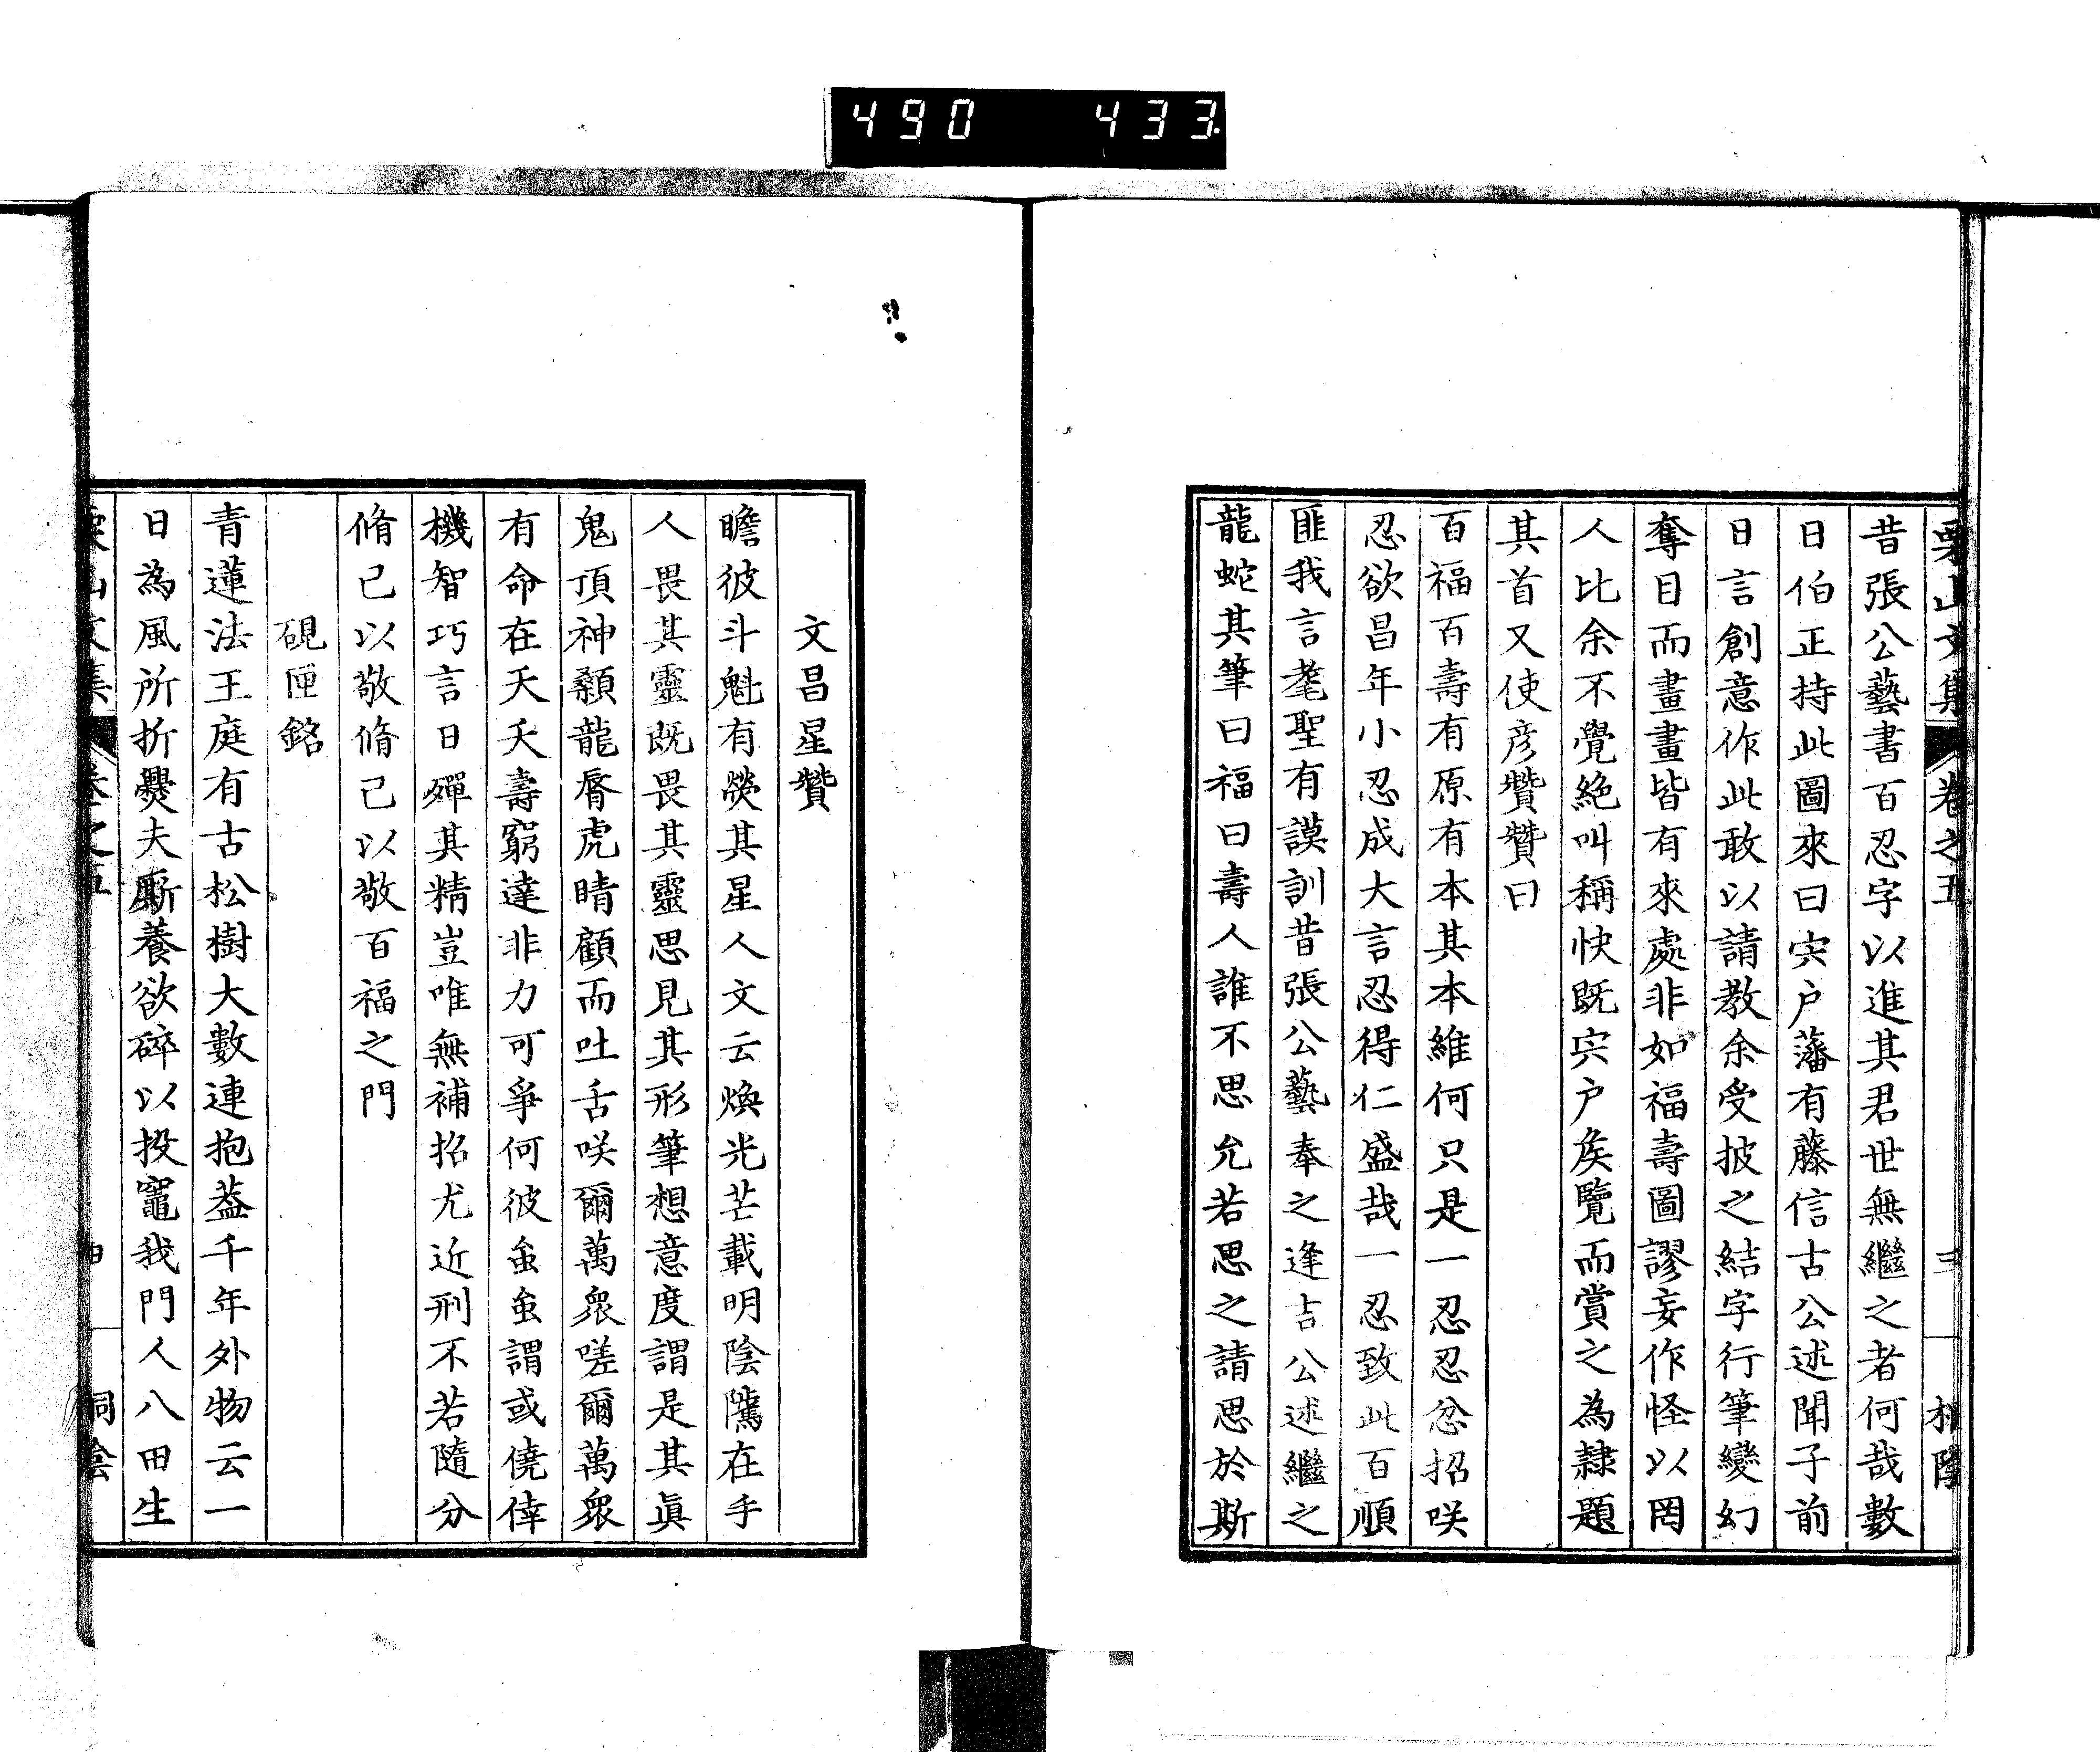 490 433
栗山文集 卷之五 三
昔張公藝書百忍字以進其君世無繼之者何哉數
日伯正持此圖來曰宍户藩有藤信古公述聞子前
日言創意作此敢以請教余受披之結字行筆變幻
奪目而畫畫皆有來處非如福壽圖謬妄作怪以罔
人比余不覺絶叫稱快既宍户矦覽而賞之為隷題
其首又使彦贊贊曰
百福百壽有原有本其本維何只是一忍忍忿招咲
忍欲昌年小忍成大言忍得仁盛哉一忍致此百順
匪我言耄聖有謨訓昔張公藝奉之逢吉公述繼之
龍蛇其筆曰福曰壽人誰不思允若思之請思於斯
文昌星贊
瞻彼斗魁有熒其星人文云煥光芒載明陰隲在手
人畏其靈既畏其靈思見其形筆想意度謂是其眞
鬼頂神顙龍脣虎睛顧而吐舌咲爾萬衆嗟爾萬衆
有命在天夭壽窮達非力可爭何彼䖝䖝謂或僥倖
機智巧言日殫其精豈唯無補招尤近刑不若隨分
脩己以敬脩己以敬百福之門
硯匣銘
青蓮法王庭有古松樹大數連抱葢千年外物云一
日為風所折爨夫廝養欲碎以投竈我門人八田生